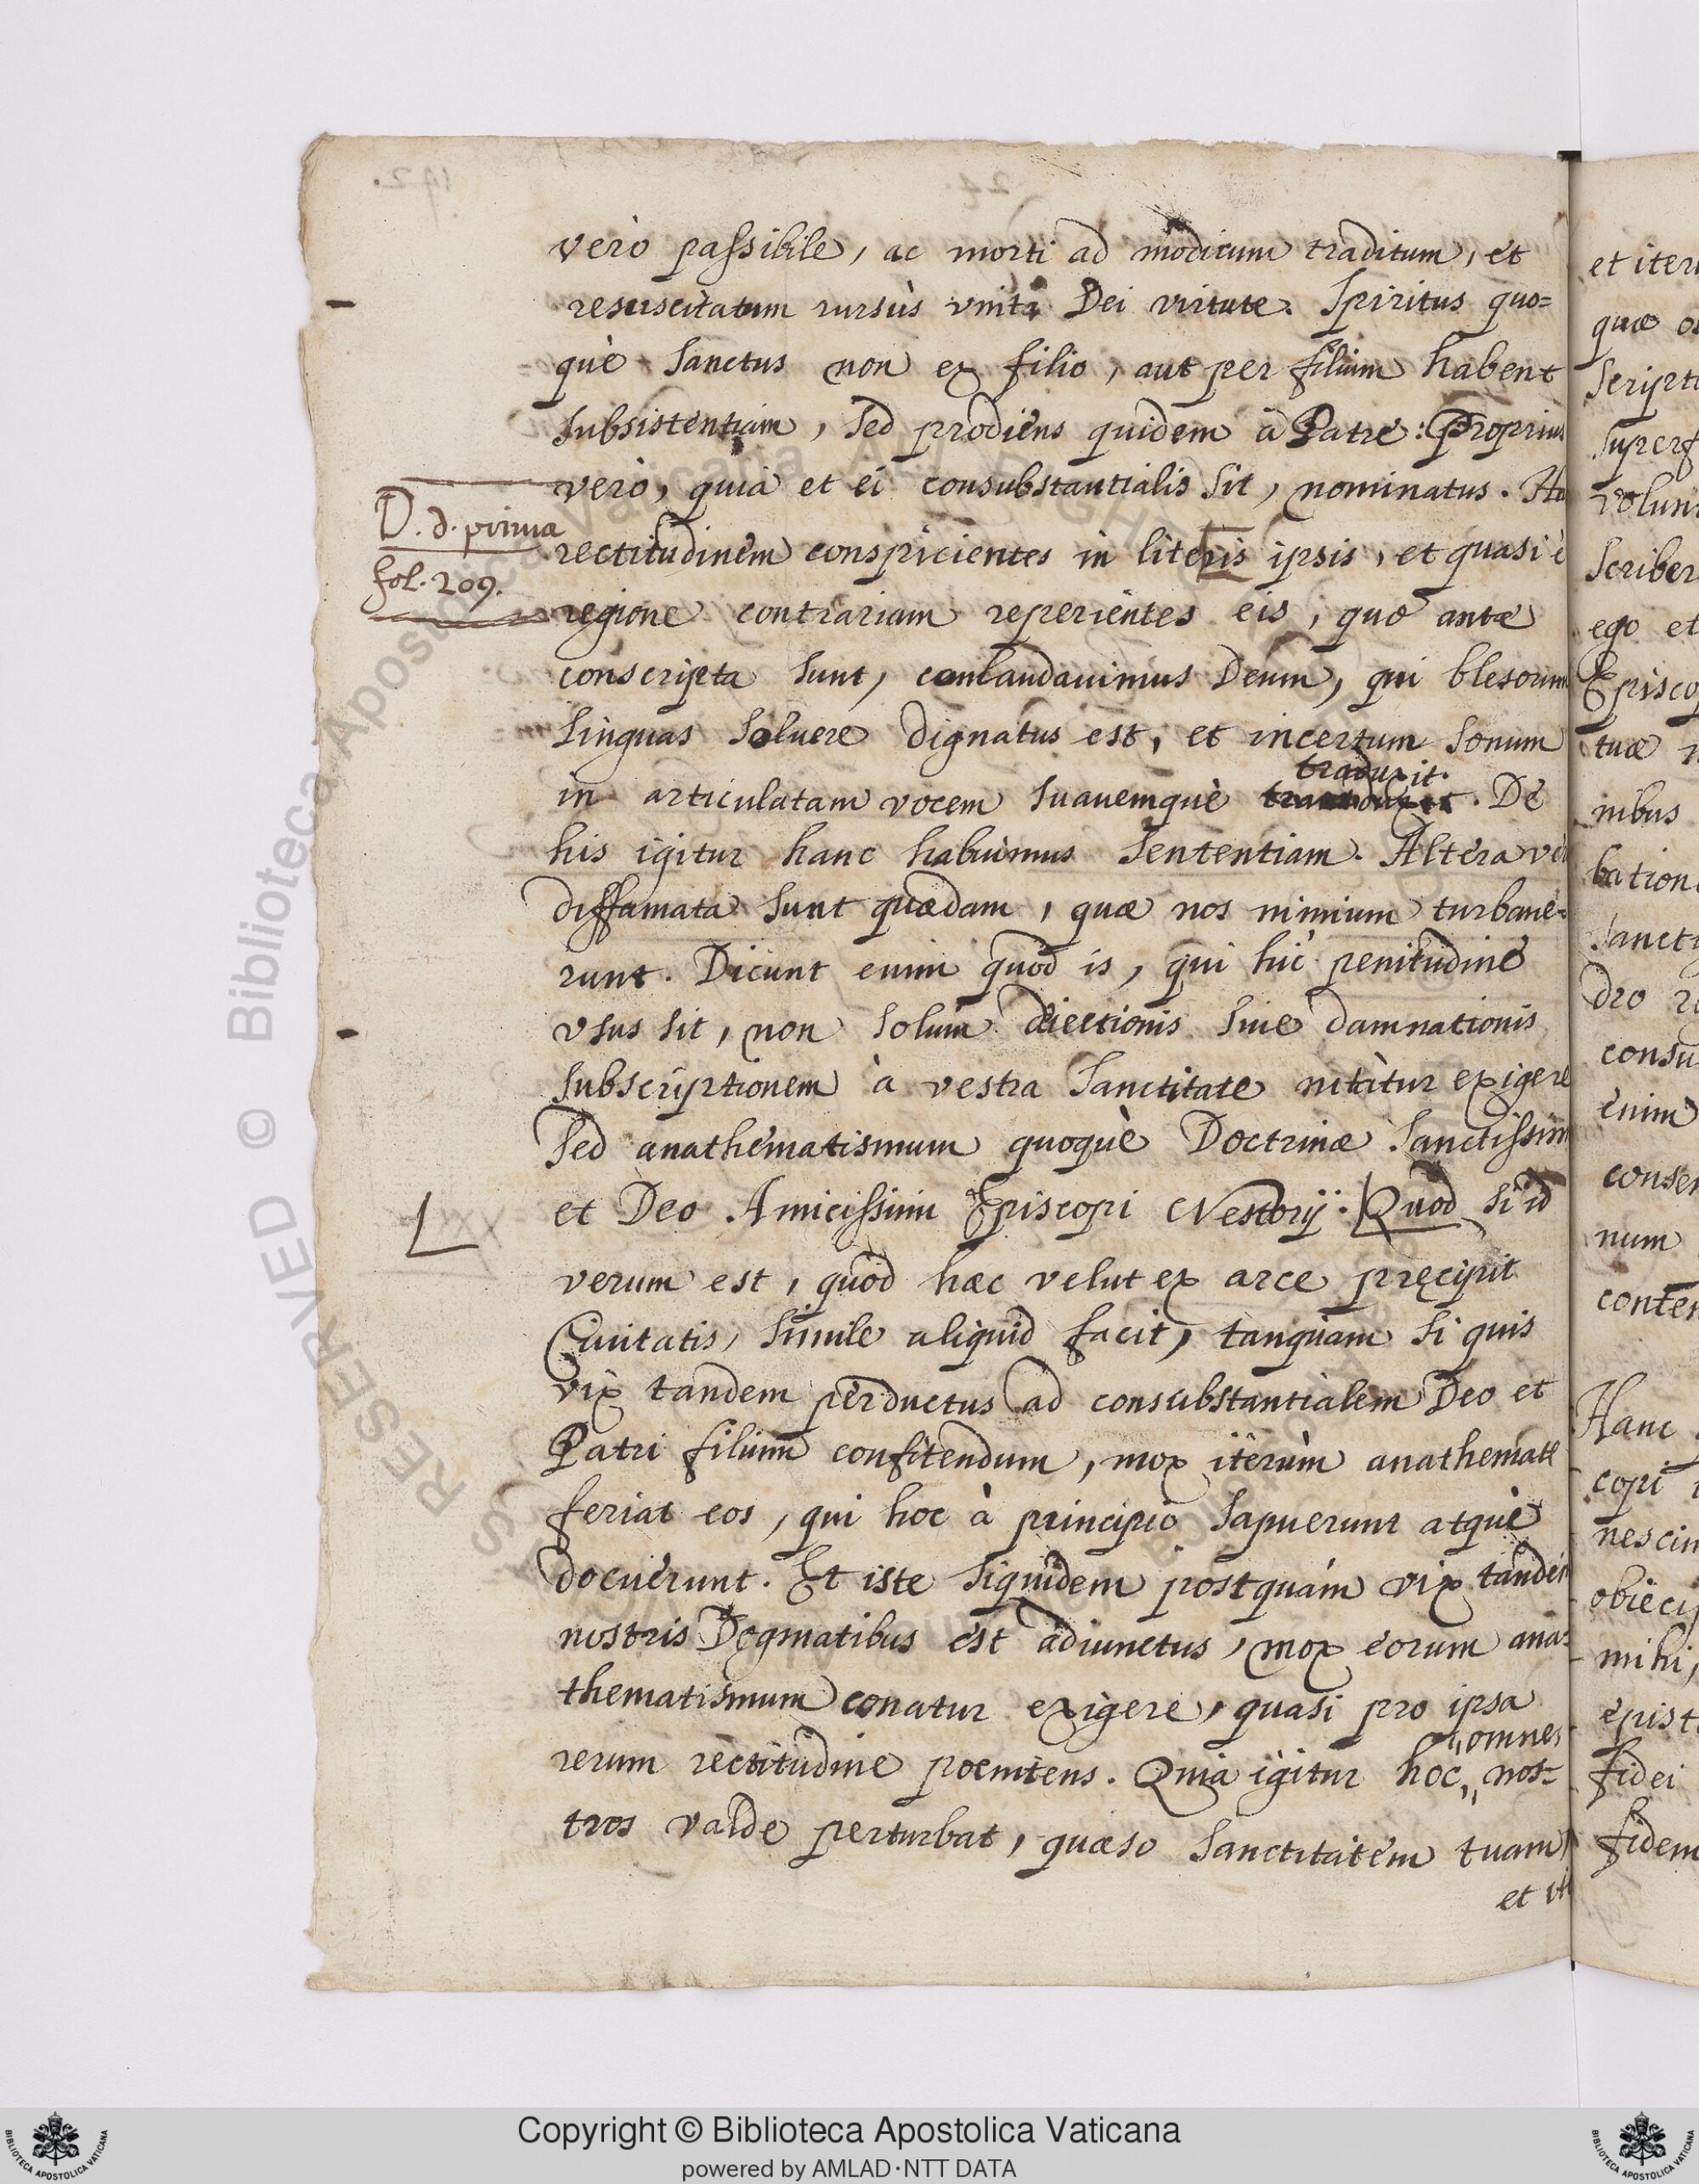 verò passibile, ac morti ad modicum traditum, et
resuscitatum rursùs vnita Dei virtute. Spiritus quo=
què Sanctus non ex filio, aut per filium habent
subsistentiam, sed prodiens quidem à Patre: Proprius
verò, quia et ei consubstantialis sit, nominatus.
D. d. prima
fol. 209.
rectitudinem conspicientes in literis ipsis, et quasi è
regione contrariam reperientes eis, quæ ante
conscripta sunt, conlaudauimus Deum, qui blesorum
linguas soluere dignatus est, et incertum sonum
traduxit.
in articulatam vocem suauemquè . De
his igitur hanc habuimus sententiam. Altera verò
diffamata sunt quædam, quæ nos nimium turbaue=
runt. Dicunt enim quòd is, qui hic penitudine
vsus sit, non solum deiectionis siue damnationis
subscriptionem à vestra Sanctitate nitàtur exigere
Sed anathematismum quoquè Doctrinæ Sanctissimi
et Deo Amicissimi Episcopi Nestorij. Quòd si id
verum est, quòd hæc velut ex arce pręcipit
Ciuitatis, simile aliquid facit, tanquam si quis
vix tandem perductus ad consubstantialem Deo et
Patri filium confitendum, mox iterùm anathemate
feriat eos, qui hoc à principio sapuerunt atquè
docuerunt. Et iste siquidem postquàm vix tandem
nostris Dogmatibus est adiunctus, mox eorum ana=
thematismum conatur exigere, quasi pro ipsa
omnes
rerum rectitudine poenitens. Quia igitur hoc,, nos=
tros valde perturbat, quæso Sanctitatem tuam,
et vti
et iter
quæ
Script
superf
volun
scriber
ego et
Episcop
tuæ
nibus
bation
sancti
dro
consu
enim
consen
num
conten
Hanc
copi
nescim
obieci
mihi,
epist
fidei
fidem
Copyright © Biblioteca Apostolica Vaticana
powered by AMLAD·NTT DATA